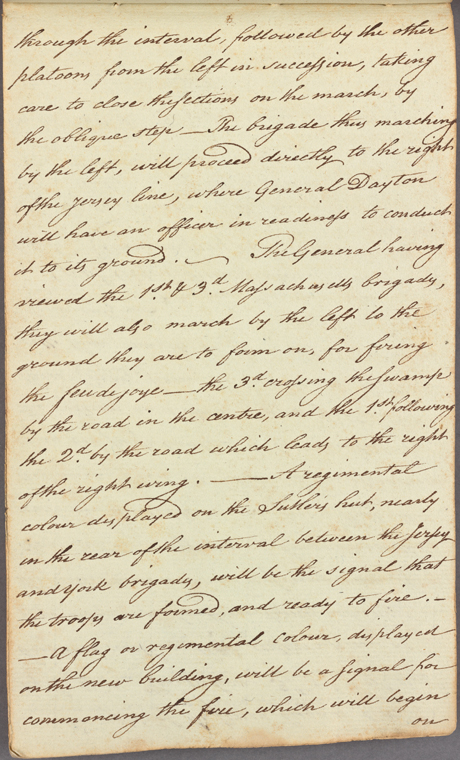 8
through the interval, followed by the other
platoons from the left in succession, taking
care to close the sections on the march, by
the oblique step — The brigade thus marching
by the left, will proceed directly to the right
of the Jersey line, where General Dayton
will have an officer in readiness to conduct
it to its ground. — The General having
viewed the 1st & 3d Massachusetts brigady,
they will also march by the left to the
ground they are to form on, for firing
the feu de joye — the 3d crossing the swamp
by the road in the centre, and the 1st following
the 2d by the road which leads to the right
of the right wing. — A regimental
colour displayed on the Sutlers hut, nearly
in the rear of the interval between the Jersey
and York brigady, will be the signal that
the troops are formed, and ready to fire. —
— A flag or regimental colour, displayed
on the new building, will be a signal for
commencing the fire, which will begin
on